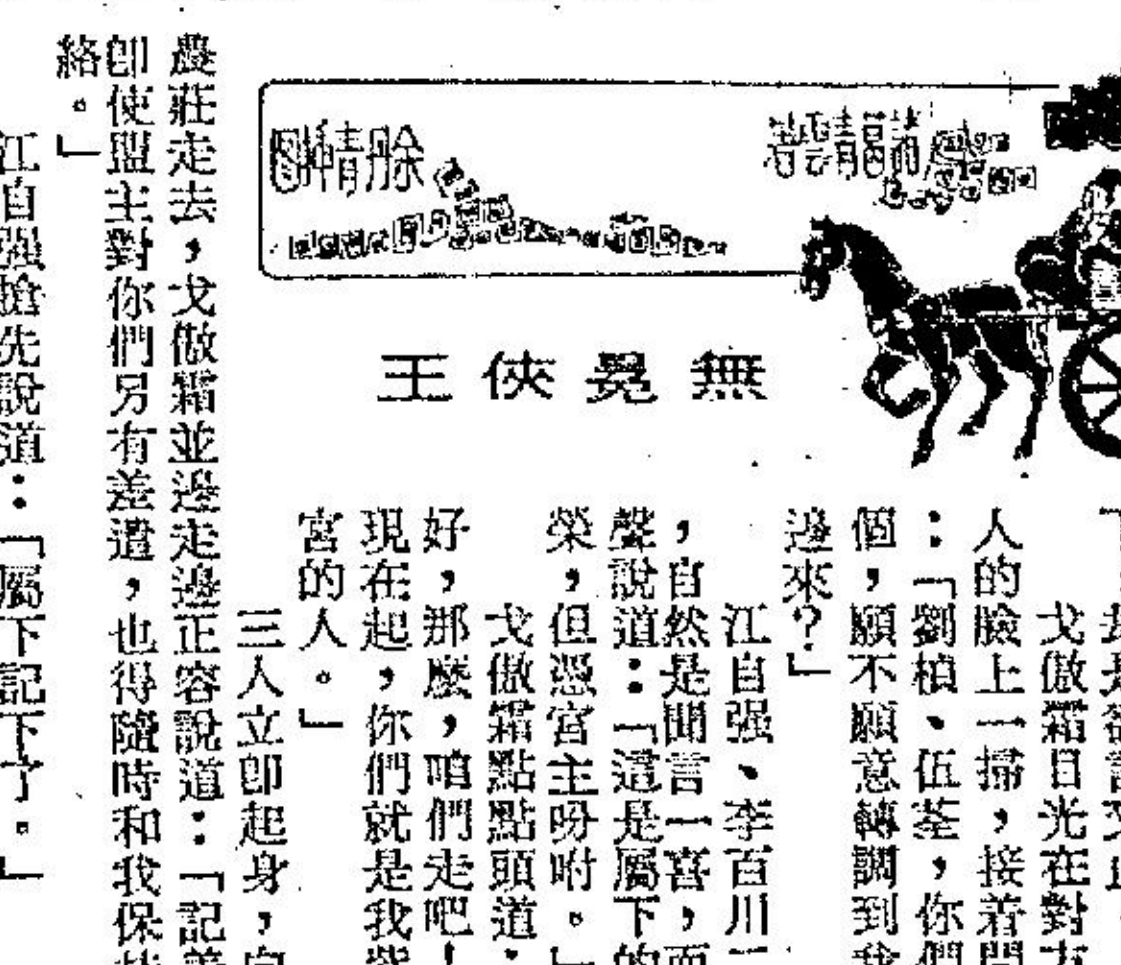 諸葛青雲著
余丹青插圖
無冕俠王
戈傲霜目光在對方
人的臉上一掃，接着問
：「劉楨、伍荃，你們
個，願不願意轉調到我
邊來？」
江自强、李百川二
，自然是聞言一喜，而
聲說道：「這是屬下的
榮，但憑宮主吩咐。」
戈傲霜點點頭道：
好，那麼，咱們走吧！
現在起，你們就是我紫
宮的人。」
三人立卽起身，向
農莊走去，戈傲霜並邊走邊正容說道：「記着
卽使盟主對你們另有差遣，也得隨時和我保持
絡。」
江自强搶先說道：「屬下記下了。」